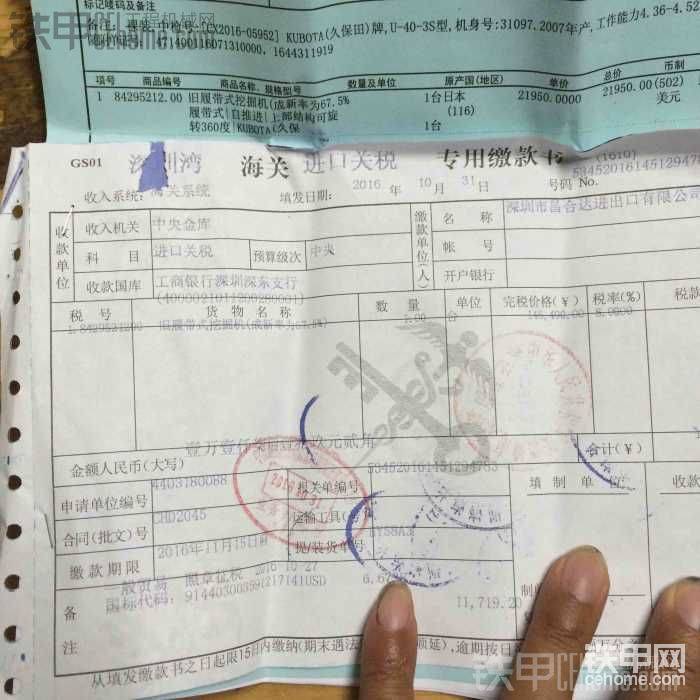 标记唛码及备注
KUBOTA(久保田)牌,U-40-3S型,机身号:31097.2007年产,工作能力4.36-4.52
项号 商品编号 商品名称、规格型号 数量及单位 原产国(地区) 单价 总价 币制
1 84295212.00 旧履带式挖掘机(成新率为67.5% 1台 日本 21950.0000 21950.00 (502)
履带式|自推进|上部结构可旋 (116) 美元
转360度|KUBOTA(久保 1台
GS01 深圳湾 海关 进口关税 专用缴款书 (1610)
收入系统: 海关系统 填发日期: 2016 年 10 月 31 日 号码 No. 534520161451294783
收款单位 收入机关 中央金库 缴款单位(人) 名称 深圳市昌合达进出口有限公司
科目 进口关税 预算级次 中央 帐号
收款国库 工商银行深圳深东支行 开户银行
(4000021011200280001)
税号 货物名称 数量 单位 完税价格(¥) 税率(%) 税款
1.8429521200 旧履带式挖掘机(成新率为67.5%) 1.00 台 8.0000
金额人民币(大写) 合计(¥)
申请单位编号 4403180088 报关单编号 填制单位 收款
合同(批文)号 CHD2045 运输工具(
缴款期限 2016年11月15日前 提/装货单号
备注 一般贸易 照章征税 2016-10-27
国标代码: 914403000359(217141USD 6.67
11,719.20
制
从填发缴款书之日起限15日内缴纳(期末遇法 顺延),逾期按日
铁甲工程机械网
cehome.com
铁甲网
cehome.com